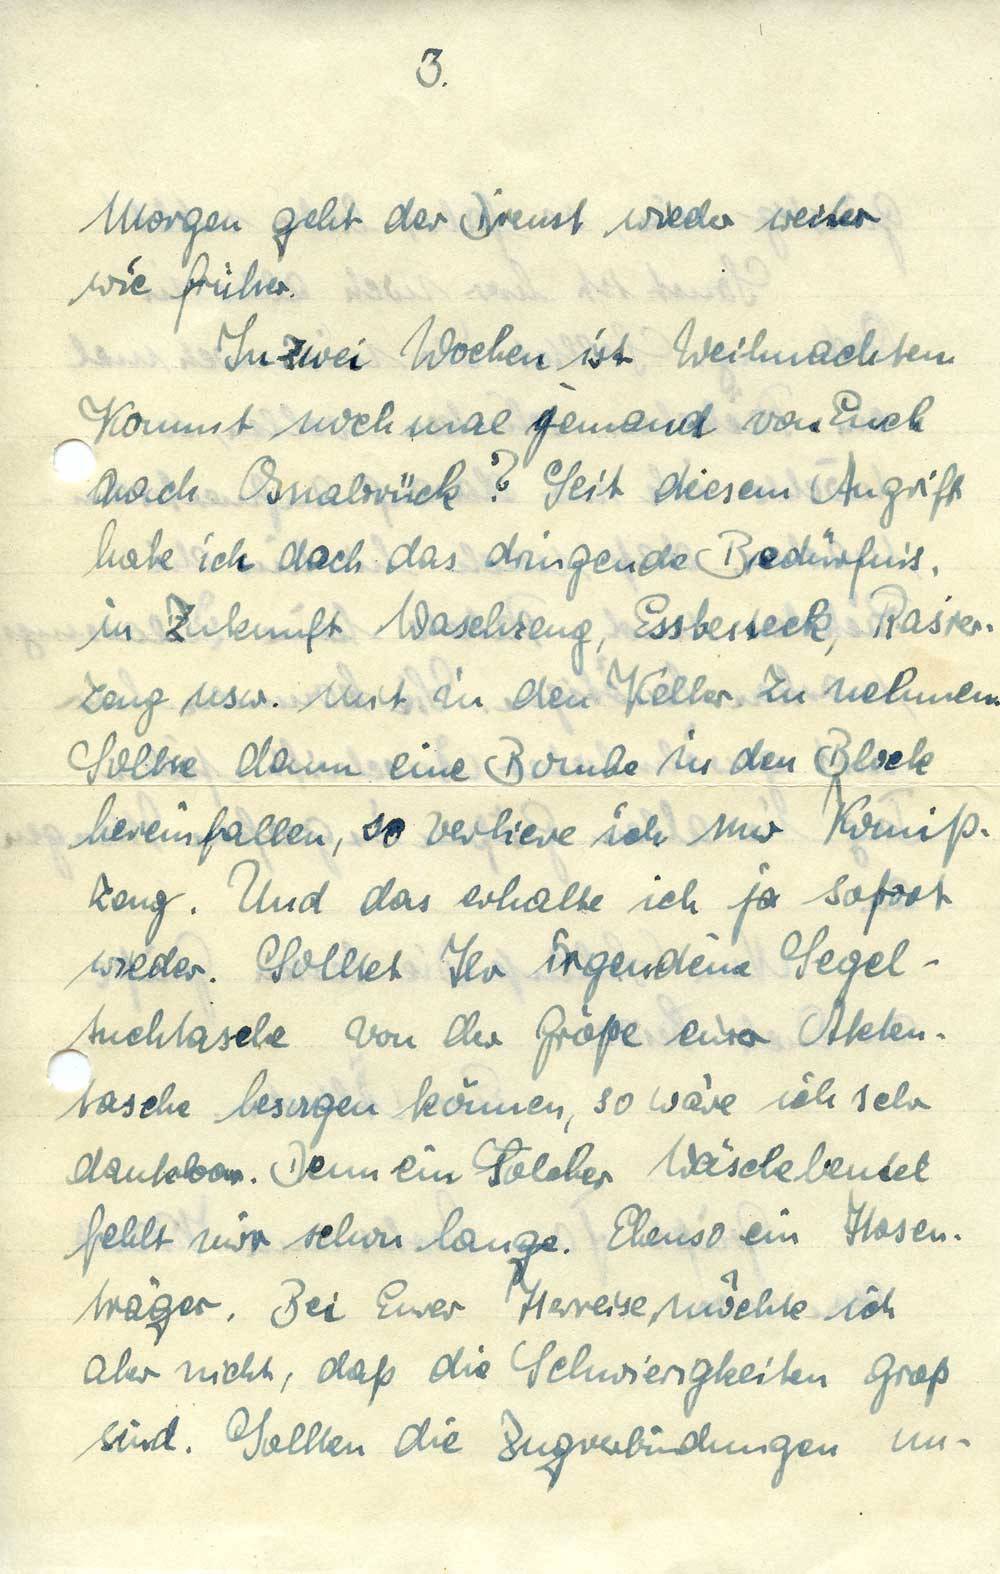 3.
Morgen geht der Dienst wieder weiter
wie früher.
In zwei Wochen ist Weihnachten.
Kommt noch mal jemand von Euch
nach Osnabrück? Seit diesem Angriff
habe ich doch das dringende Bedürfnis,
in Zukunft Waschzeug, Essbesteck, Rasier-
zeug usw. mit in den Keller zu nehmen.
Sollte dann eine Bombe in den Block
hereinfallen, so verliere ich nur Komiß-
zeug. Und das erhalte ich ja sofort
wieder. Solltet Ihr irgendeine Segel-
tuchtasche von der Größe einer Akten-
tasche besorgen können, so wäre ich sehr
dankbar. Denn ein solcher Wäschebeutel
fehlt mir schon lange. Ebenso ein Hosen-
träger. Bei Eurer Herreise möchte ich
aber nicht, daß die Schwierigkeiten groß
sind. Sollten die Zugverbindungen un-